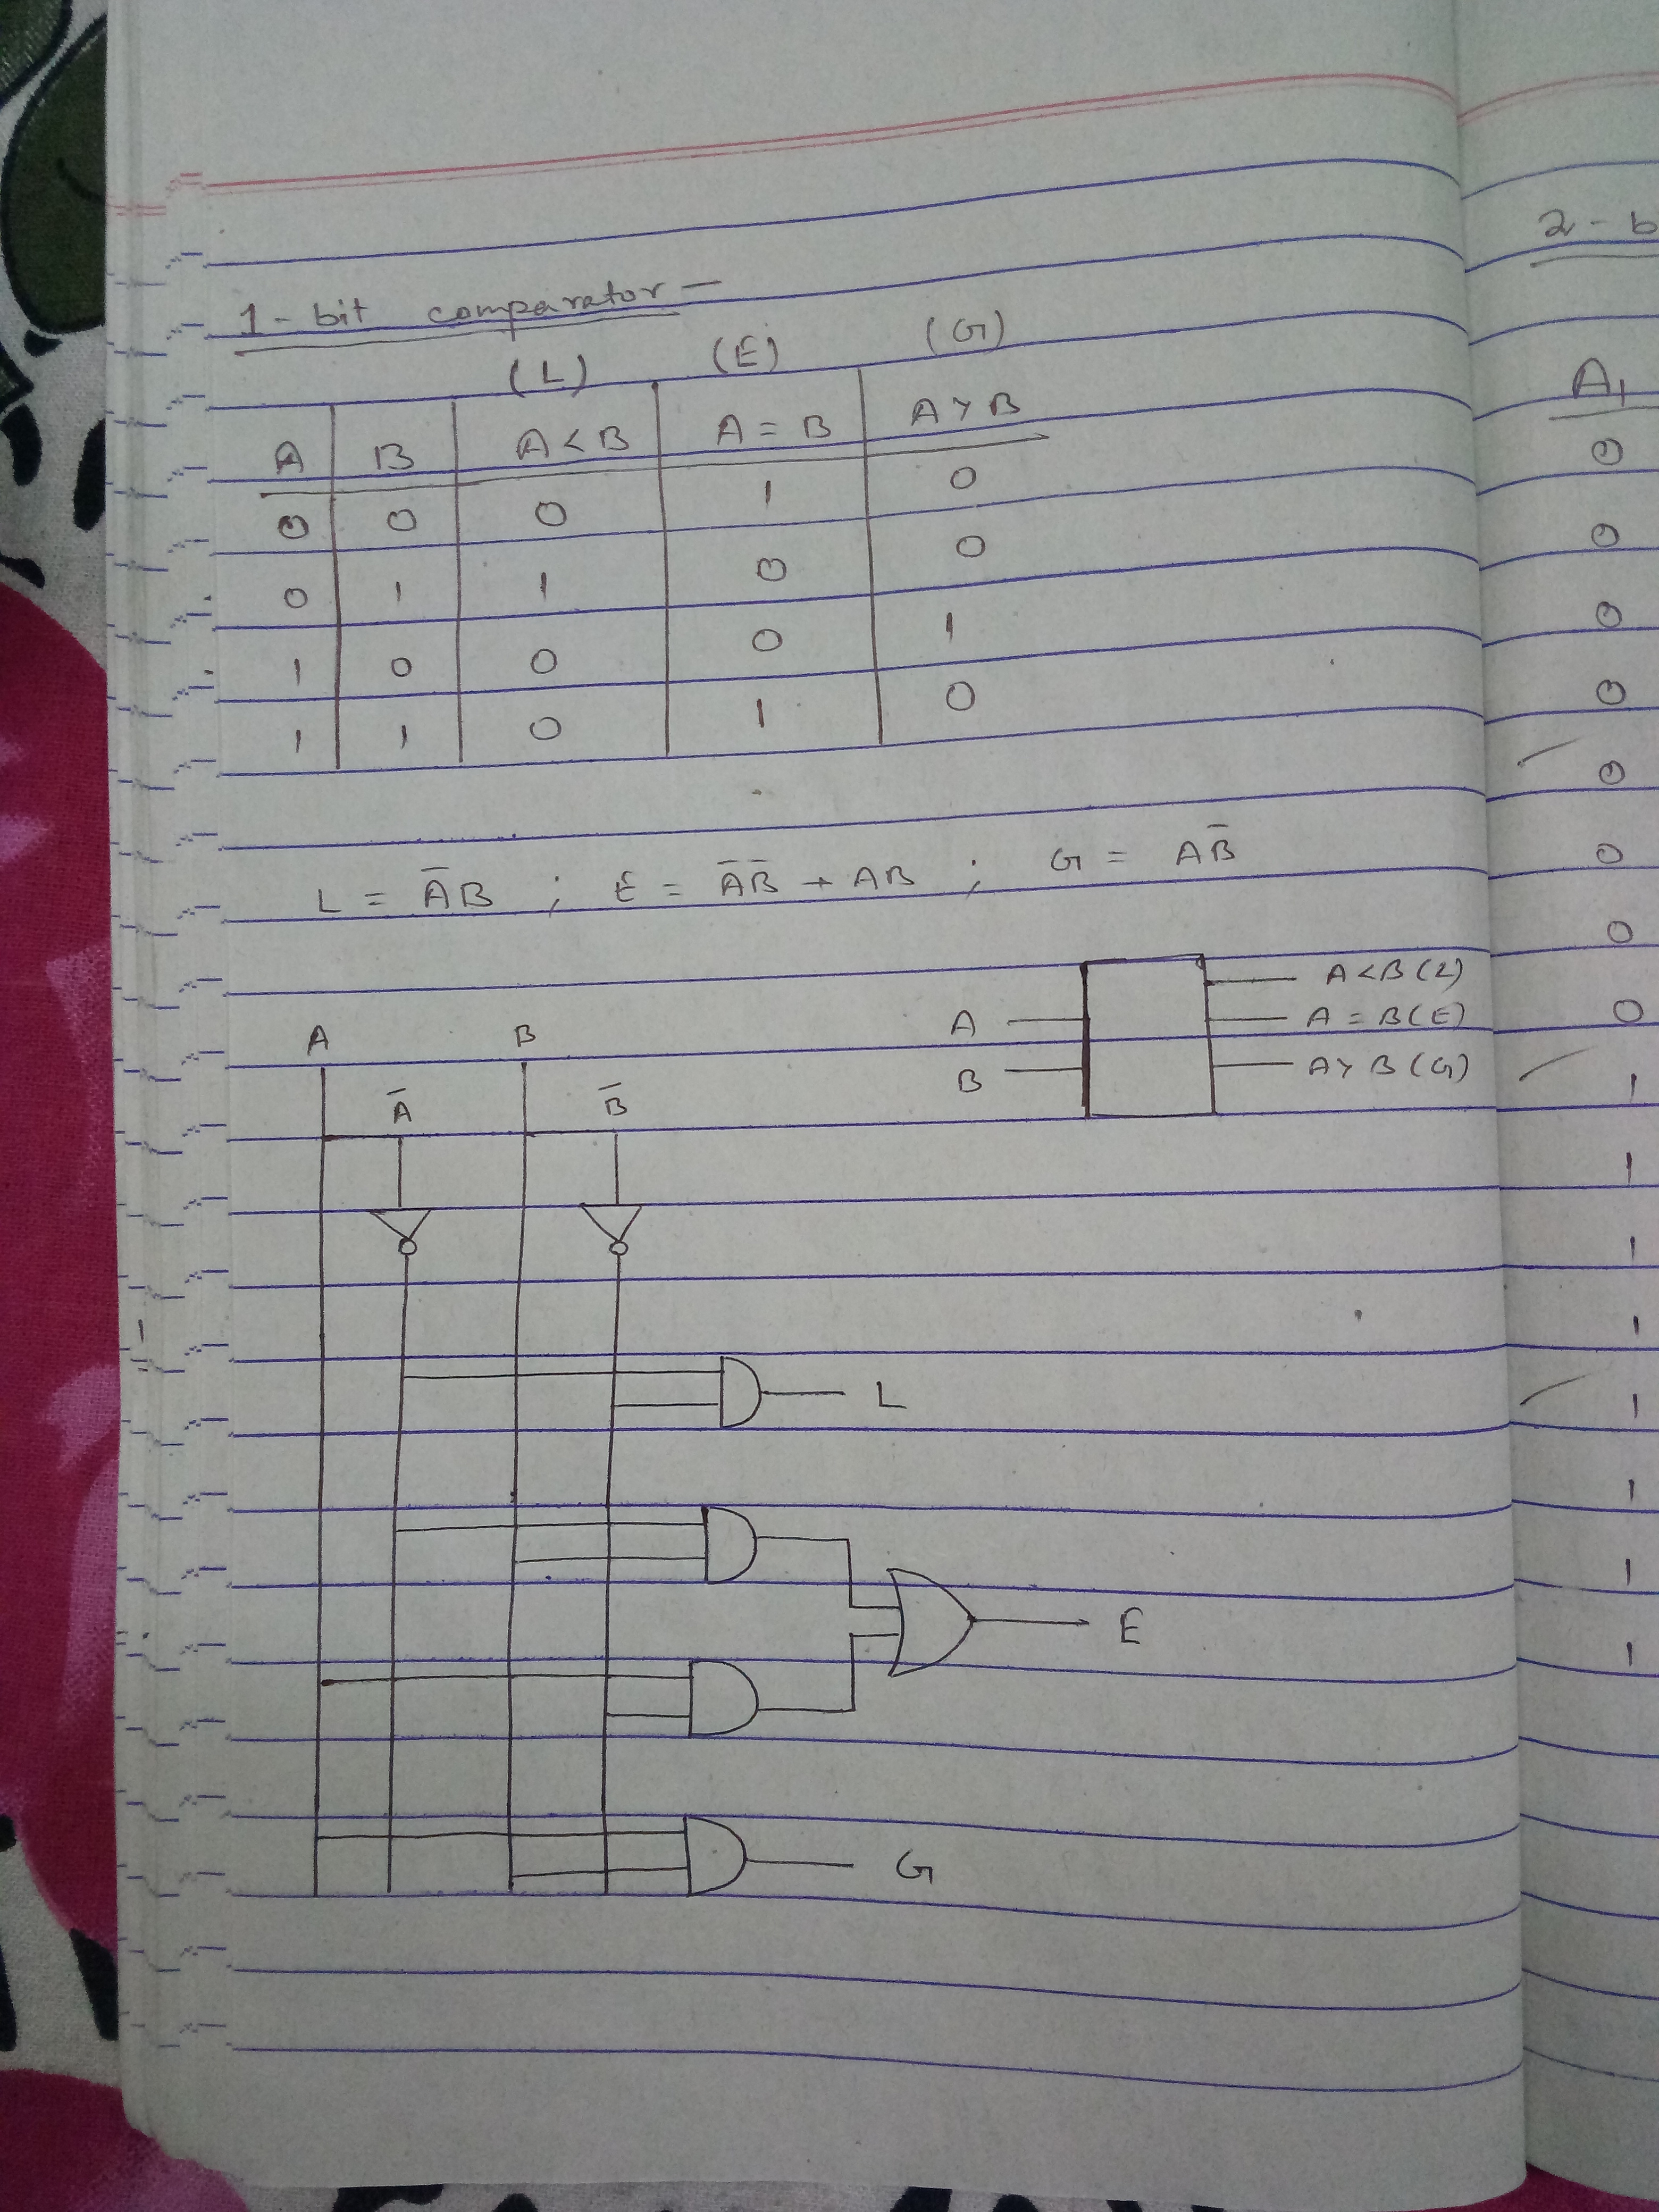 1-bit comparator –
(L) (E) (G)
A B A<B A=B A>B
0 0 0 1 0
0 1 1 0 0
1 0 0 0 1
1 1 0 1 0
L = A̅B ; E = A̅B̅ + AB ; G = AB̅
A<B(L)
A A=B(E)
B A>B(G)
A B
A̅ B̅
L
E
G
2-b
A1
0
0
0
0
0
0
0
0
1
1
1
1
1
1
1
1